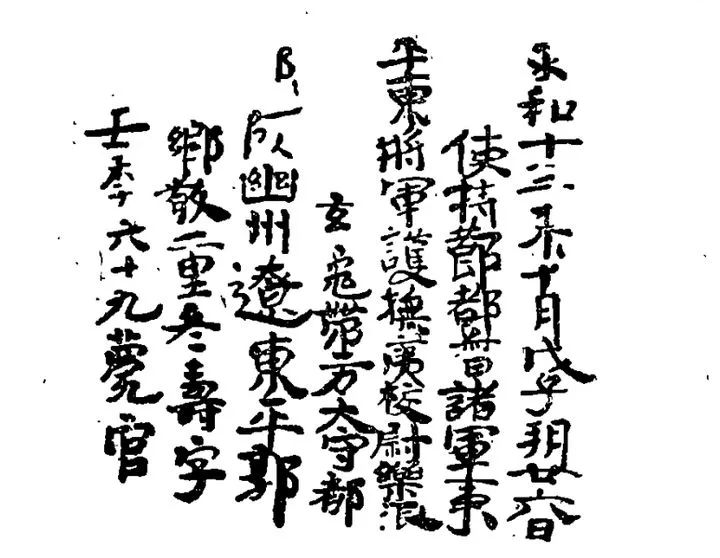 永和十三年十月戊子朔廿六日
使持節都督諸軍事
平東將軍護撫夷校尉樂浪
玄菟帶方大守都
幽州遼東平郭
鄉敬里冬壽字
年六十九薨官